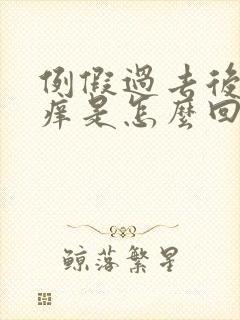 例假過去後
痒是怎麼回
鲸落繁星